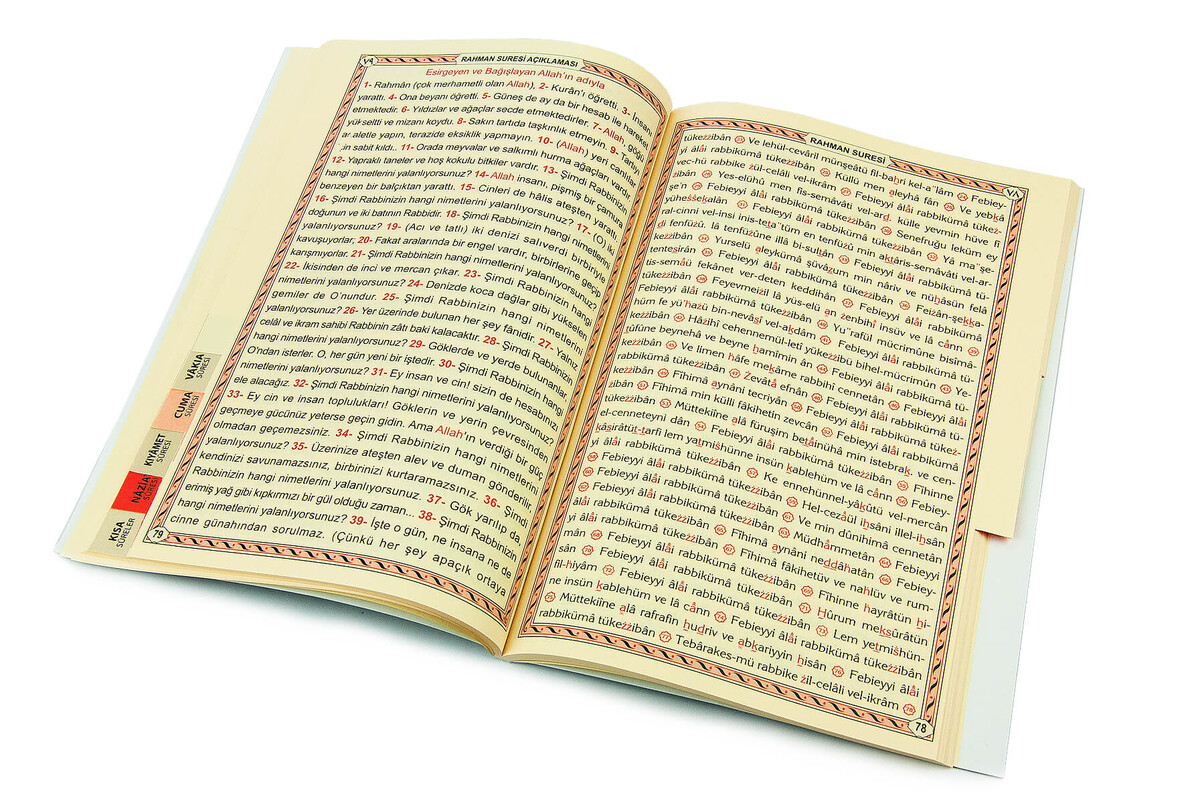 ٧٨
RAHMAN SURESİ AÇIKLAMASI
Esirgeyen ve Bağışlayan Allah'ın adıyla
1- Rahmân (çok merhametli olan Allah), 2- Kurân'ı öğretti. 3- İnsanı
yarattı. 4- Ona beyanı öğretti. 5- Güneş de ay da bir hesab ile hareket
etmektedir. 6- Yıldızlar ve ağaçlar secde etmektedirler. 7- Allah, göğü
yükseltti ve mizanı koydu. 8- Sakın tartıda taşkınlık etmeyin. 9- Tartıyı
ar aletle yapın, terazide eksiklik yapmayın. 10- (Allah) yeri canlılar
için sabit kıldı.. 11- Orada meyvalar ve salkımlı hurma ağaçları vardır.
12- Yapraklı taneler ve hoş kokulu bitkiler vardır. 13- Şimdi Rabbinizin
hangi nimetlerini yalanlıyorsunuz? 14- Allah insanı, pişmiş bir çamura
benzeyen bir balçıktan yarattı. 15- Cinleri de hâlis ateşten yarattı.
16- Şimdi Rabbinizin hangi nimetlerini yalanlıyorsunuz? 17- (O) iki
doğunun ve iki batının Rabbidir. 18- Şimdi Rabbinizin hangi nimetlerini
yalanlıyorsunuz? 19- (Acı ve tatlı) iki denizi salıverdi birbiriyle
kavuşuyorlar; 20- Fakat aralarında bir engel vardır, birbirlerine geçip
karışmıyorlar. 21- Şimdi Rabbinizin hangi nimetlerini yalanlıyorsunuz?
22- İkisinden de inci ve mercan çıkar. 23- Şimdi Rabbinizin hangi
nimetlerini yalanlıyorsunuz? 24- Denizde koca dağlar gibi yükselen
gemiler de O'nundur. 25- Şimdi Rabbinizin hangi nimetlerini
yalanlıyorsunuz? 26- Yer üzerinde bulunan her şey fânidir. 27- Yalnız
celâl ve ikram sahibi Rabbinin zâtı baki kalacaktır. 28- Şimdi Rabbinizin
hangi nimetlerini yalanlıyorsunuz? 29- Göklerde ve yerde bulunanlar,
O'ndan isterler. O, her gün yeni bir iştedir. 30- Şimdi Rabbinizin hangi
nimetlerini yalanlıyorsunuz? 31- Ey insan ve cin! sizin de hesabınızı
ele alacağız. 32- Şimdi Rabbinizin hangi nimetlerini yalanlıyorsunuz?
33- Ey cin ve insan toplulukları! Göklerin ve yerin çevresinden
geçmeye gücünüz yeterse geçin gidin. Ama Allah'ın verdiği bir güç
olmadan geçemezsiniz. 34- Şimdi Rabbinizin hangi nimetlerini
yalanlıyorsunuz? 35- Üzerinize ateşten alev ve duman gönderilir,
kendinizi savunamazsınız, birbirinizi kurtaramazsınız. 36- Şimdi
Rabbinizin hangi nimetlerini yalanlıyorsunuz. 37- Gök yarılıp da,
erimiş yağ gibi kıpkırmızı bir gül olduğu zaman... 38- Şimdi Rabbinizin
hangi nimetlerini yalanlıyorsunuz? 39- İşte o gün, ne insana ne de
cinne günahından sorulmaz. (Çünkü her şey apaçık ortaya
78
VÂKIA
SÛRESİ
CUMA
SÛRESİ
KIYÂMET
SÛRESİ
NÂZİA
SÛRESİ
KISA
SÛRELER
RAHMAN SURESİ
٧٨
tükezzibân 23 Ve lehül-cevâril münşeâtü fil-bahri kel-a'lâm 24 Febiey-
yi âlâi rabbikümâ tükezzibân 25 Küllü men aleyhâ fân 26 Ve yebkâ
vec-hü rabbike zül-celâli vel-ikrâm 27 Febieyyi âlâi rabbikümâ tükez-
zibân 28 Yes-elühû men fis-semâvâti vel-ard. Külle yevmin hüve fî
şe'n 29 Febieyyi âlâi rabbikümâ tükezzibân 30 Senefruğu leküm ey
yühessekalân 31 Febieyyi âlâi rabbikümâ tükezzibân 32 Yâ ma'şe-
ral-cinni vel-insi inis-teta'tüm en tenfüzû min aktâris-semâvâti vel-ar-
di fenfüzû. lâ tenfüzûne illâ bi-sultân 33 Febieyyi âlâi rabbikümâ tü-
kezzibân 34 Yurselü aleykümâ şüvâzum min nâriv ve nühâsün felâ
tentesirân 35 Febieyyi âlâi rabbikümâ tükezzibân 36 Feizân-şekka-
tis-semâü fekânet ver-deten keddihân 37 Febieyyi âlâi rabbikümâ
tükezzibân 38 Feyevmeizil lâ yüs-elü an zenbihî insüv ve lâ cânn 39
Febieyyi âlâi rabbikümâ tükezzibân 40 Yu'raful mücrimûne bisîmâ-
hüm fe yü'hazü bin-nevâsî vel-akdâm 41 Febieyyi âlâi rabbikümâ tü-
kezzibân 42 Hâzihî cehennemül-letî yükezzibü bihel-mücrimûn 43 Ye-
tûfûne beynehâ ve beyne hamîmin ân 44 Febieyyi âlâi rabbikümâ tü-
kezzibân 45 Ve limen hâfe mekâme rabbihî cennetân 46 Febieyyi âlâi
rabbikümâ tükezzibân 47 Zevâtâ efnân 48 Febieyyi âlâi rabbikümâ tükezzi-
bân 49 Fîhimâ aynâni tecriyân 50 Febieyyi âlâi rabbikümâ tükezzi-
bân 51 Fîhimâ min külli fâkihetin zevcân 52 Febieyyi âlâi rabbikümâ tü-
kezzibân 53 Müttekiîne alâ furuşim betâinühâ min istebrak. ve cen-
el-cenneteyni dân 54 Febieyyi âlâi rabbikümâ tükezzibân 55 Fîhinne
kâsirâtüt-tarfi lem yatmishünne insün kablehum ve lâ cânn 56 Febieyyi
yi âlâi rabbikümâ tükezzibân 57 Ke ennehünnel-yâkûtü vel-mercân
58 Febieyyi âlâi rabbikümâ tükezzibân 59 Hel-cezâül ihsâni illel-ihsân
60 Febieyyi âlâi rabbikümâ tükezzibân 61 Ve min dûnihimâ cennetân
62 Febieyyi âlâi rabbikümâ tükezzibân 63 Müdhâmmetân 64 Febieyyi
âlâi rabbikümâ tükezzibân 65 Fîhimâ aynâni neddâhatân 66 Febiey-
yi âlâi rabbikümâ tükezzibân 67 Fîhimâ fâkihetüv ve nahlüv ve rum-
mân 68 Febieyyi âlâi rabbikümâ tükezzibân 69 Fîhinne hayrâtün hi-
sân 70 Febieyyi âlâi rabbikümâ tükezzibân 71 Hûrum meksûrâtün
fil-hiyâm 72 Febieyyi âlâi rabbikümâ tükezzibân 73 Lem yetmishün-
ne insün kablehüm ve lâ cânn 74 Febieyyi âlâi rabbikümâ tükezzibân
75 Müttekiîne alâ rafrafin hudriv ve abkariyyin hisân 76 Febieyyi âlâi
rabbikümâ tükezzibân 77 Tebârakes-mü rabbike zil-celâli vel-ikrâm 78
78